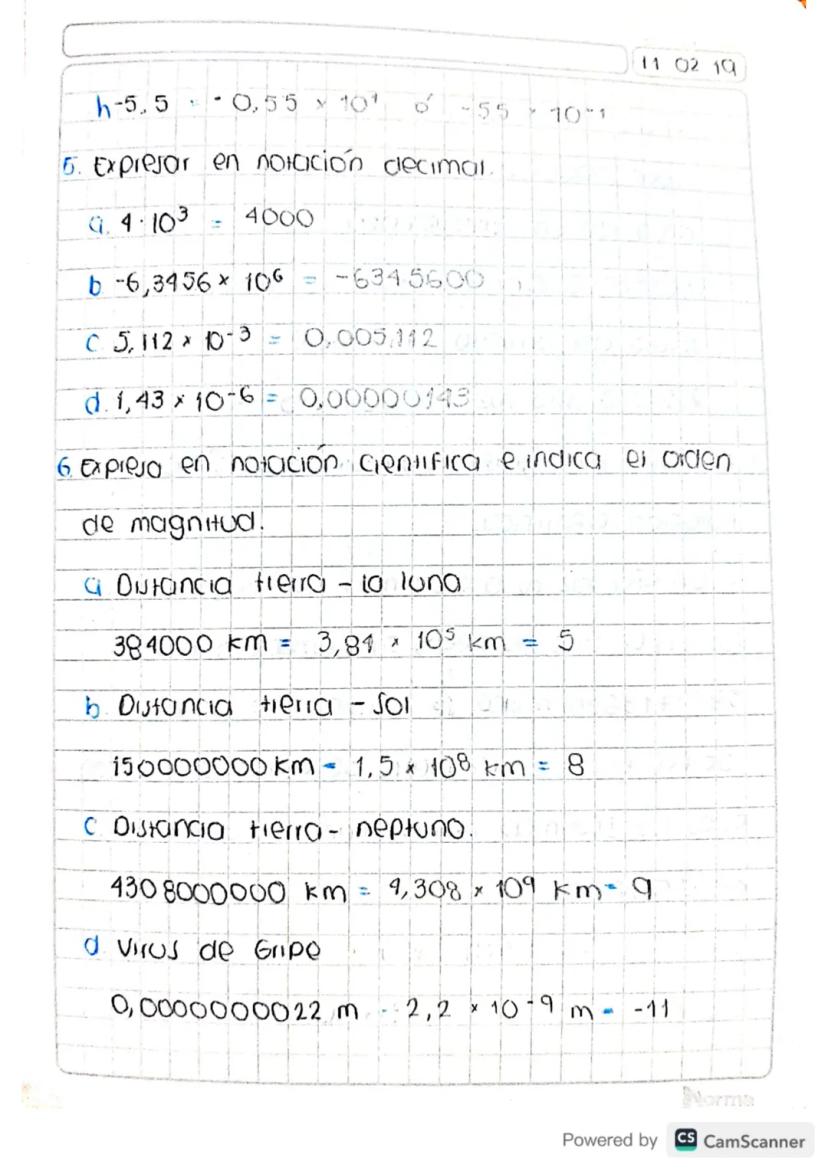 11 02 19
h -5,5 = -0,55 × 10¹ ó -55 × 10⁻¹
5. Expresar en notación decimal.
a. 4·10³ = 4000
b -6,3456 × 10⁶ = -6345600
c 5,112 × 10⁻³ = 0,005112
d. 1,43 × 10⁻⁶ = 0,00000143
6. Expresa en notación científica e indica el orden
de magnitud.
a Distancia tierra - la luna
384000 km = 3,84 × 10⁵ km = 5
b. Distancia tierra - sol
150000000 km = 1,5 × 10⁸ km = 8
c Distancia tierra - neptuno.
4308000000 km = 4,308 × 10⁹ km = 9
d Virus de Gripe
0,0000000022 m = 2,2 × 10⁻⁹ m = -11
Norma
Powered by CS CamScanner